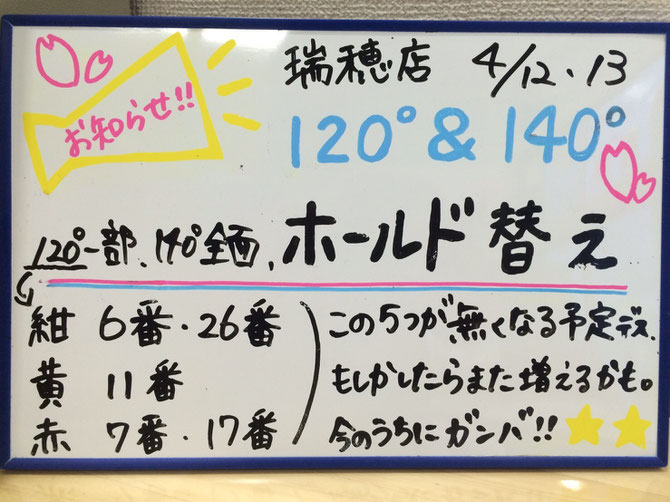 お知らせ!!
瑞穂店 4/12・13
120°&140°
120°一部、140°全面、ホールド替え
紺 6番・26番
黄 11番
赤 7番・17番
この5つが無くなる予定デス、
もしかしたらまた増えるかも。
今のうちにガンバ!!